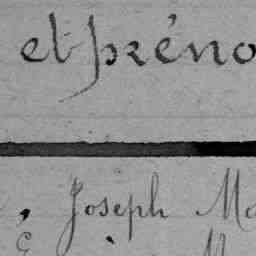 et préno
, Joseph Ma